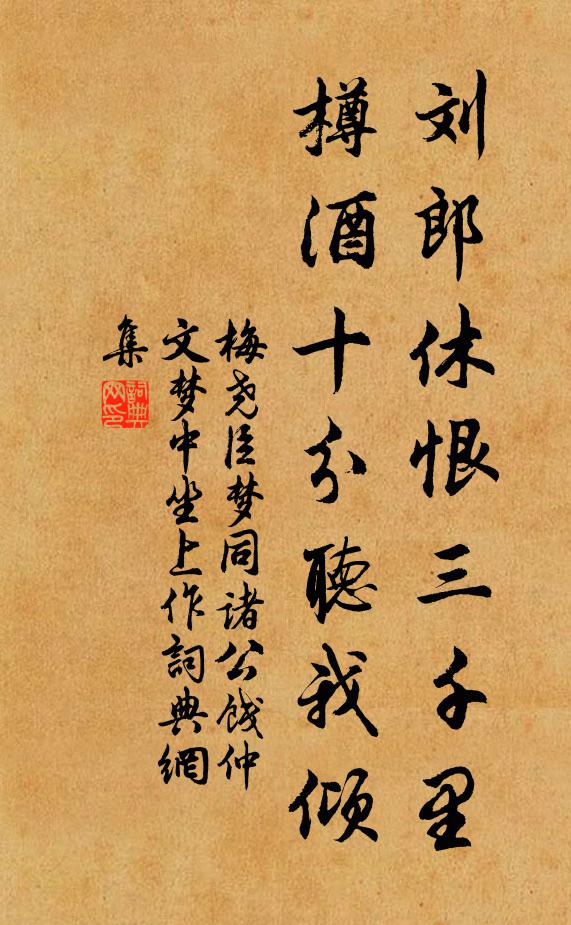 刘郎休恨三千里
樽酒十分聽我倾
梅尧臣梦同诸公饯仲
文梦中坐上作詞典網
集
詞典
网印